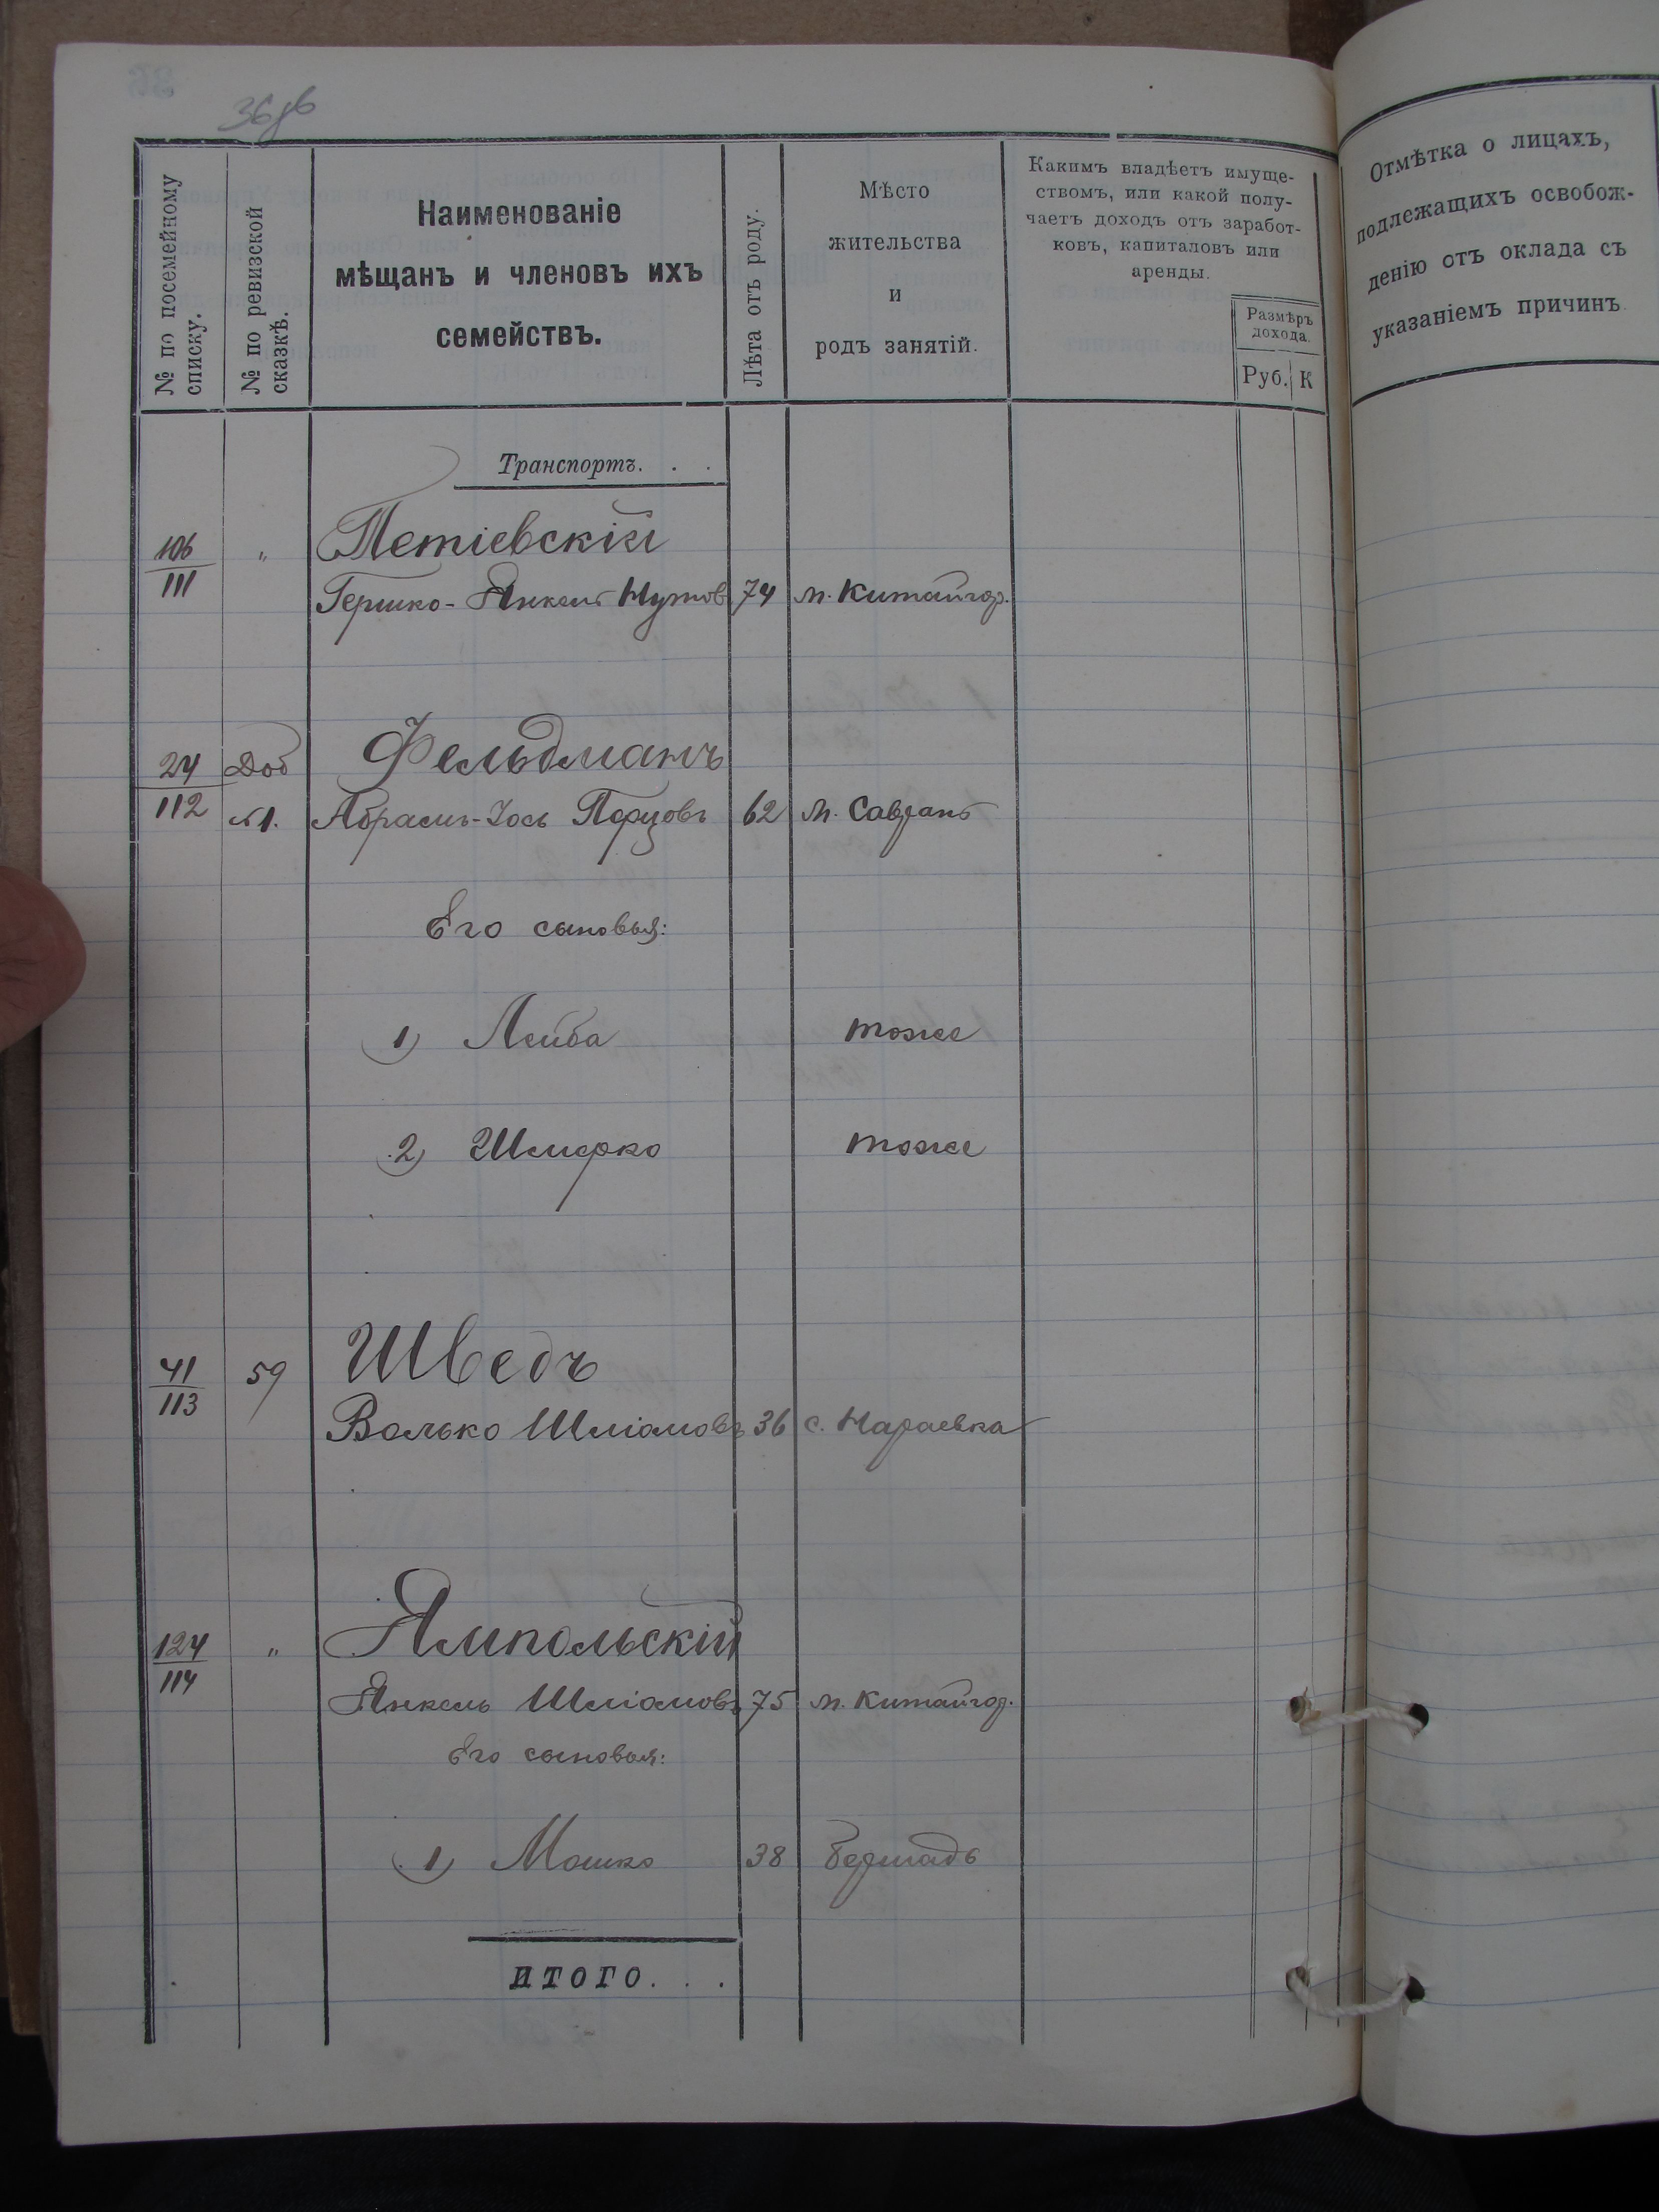 36об
№ по посемейному
списку.
№ по ревизской
сказкѣ.
Наименованіе
мѣщанъ и членовъ ихъ
семействъ.
Лѣта отъ роду.
Мѣсто
жительства
и
родъ занятій.
Какимъ владѣетъ имуще-
ствомъ, или какой полу-
чаетъ доходъ отъ заработ-
ковъ, капиталовъ или
аренды.
Размѣръ
дохода.
Руб. К
Отмѣтка о лицахъ,
подлежащихъ освобож-
денію отъ оклада съ
указаніемъ причинъ.
Транспортъ. . .
106 " Тетіевскій
111 Гершко-Янкель Нутов 74 м. Китайгор.
24 Доб Фельдманъ
112 №1. Абрамъ-Іось Перцовъ 62 м. Саврань
Его сыновья:
1) Лейба тоже
2) Шмерко тоже
41 59 Шведъ
113
Волько Шліомовъ 36 с. Нараевка
124 " Ямпольскій
114 Янкель Шліомовъ 75 м. Китайгор.
Его сыновья:
1) Мошко 38 Бершадь
ИТОГО. . .